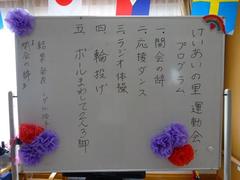 けいあいの里 運動会
プログラム
一.開会の辞
二.応援ダンス
三.ラジオ体操
四.輪投げ
五.ボールまわしてえんろ脚!
結果発表
閉会の辞